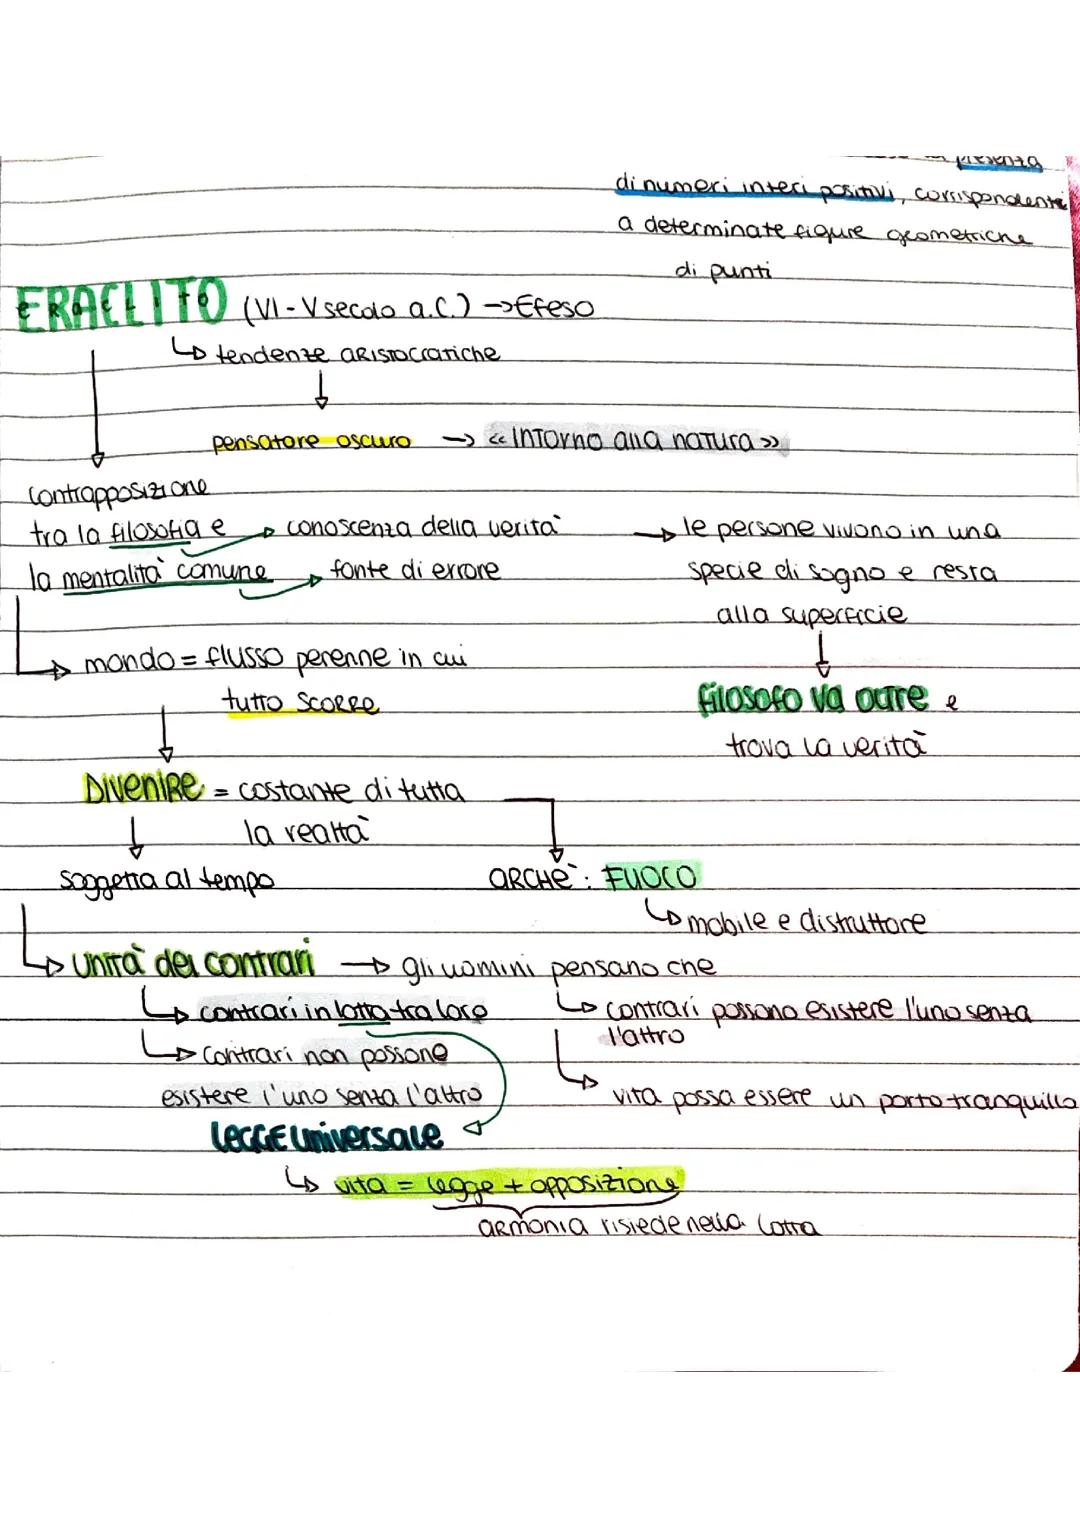 presenza
di numeri interi positivi, corrispondenti
a determinate figure geometriche
di punti
ERACLITO (VI - V secolo a.C.) → Efeso
↳ tendenze aristocratiche
pensatore oscuro → «Intorno alla natura»
contrapposizione
tra la filosofia e → conoscenza della verità → le persone vivono in una
la mentalità comune → fonte di errore specie di sogno e resta
alla superficie
→ mondo = flusso perenne in cui
tutto scorre filosofo va oltre e
trova la verità
DIVENIRE = costante di tutta
la realtà
soggetta al tempo ARCHÈ: FUOCO
↳ mobile e distruttore
→ unità dei contrari → gli uomini pensano che
→ contrari in lotta tra loro → contrari possono esistere l'uno senza
l'altro
→ contrari non possono
esistere l'uno senza l'altro → vita possa essere un porto tranquillo
LEGGE universale
↳ vita = legge + opposizione
armonia risiede nella lotta